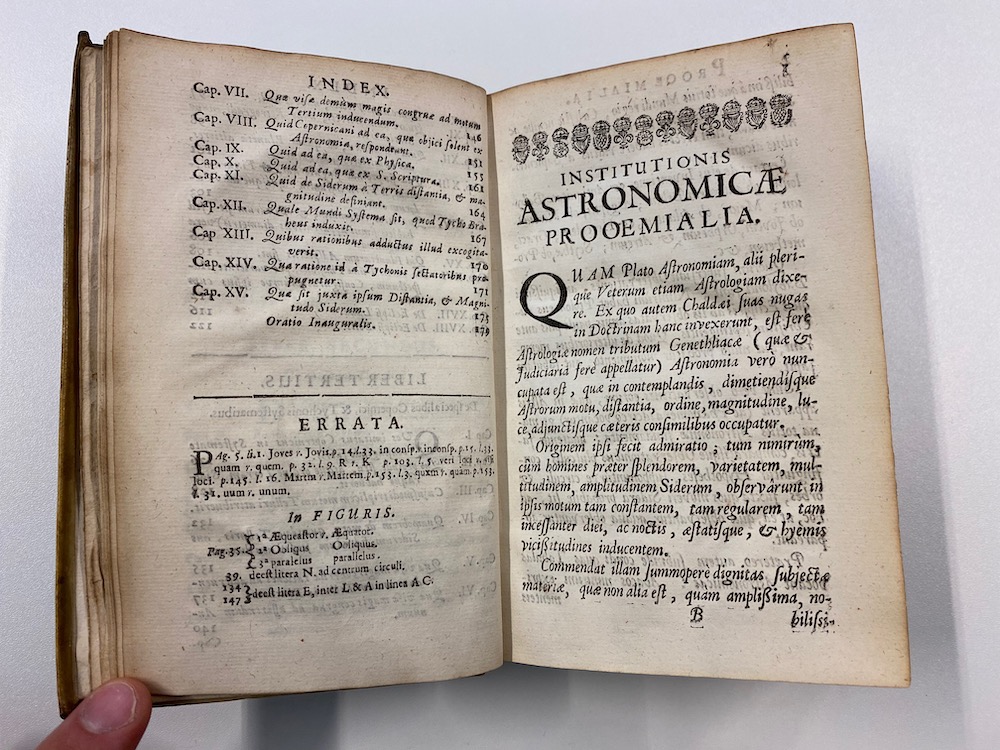 INDEX.
Cap. VII. Quæ visæ demùm magis congruæ ad motum
Tertium inducendum. 146
Cap. VIII. Quid Copernicani ad ea, quæ objici solent ex
Astronomia, respondeant. 151
Cap. IX. Quid ad ea, quæ ex Physica. 155
Cap. X. Quid ad ea, quæ ex S. Scriptura. 161
Cap. XI. Quid de Siderum à Terris distantia, & ma-
gnitudine definiant. 164
Cap. XII. Quale Mundi Systema sit, quod Tycho Bra-
heus induxit. 167
Cap XIII. Quibus rationibus adductus illud excogita-
verit. 170
Cap. XIV. Qua ratione id à Tychonis sectatoribus pro-
pugnetur. 171
Cap. XV. Quæ sit juxta ipsum Distantia, & Magni-
tudo Siderum. 175
Oratio Inauguralis. 179
ERRATA.
PAg. 5. li.1. Joves r. Jovis. p. 14. l.33. in consp. r. inconsp. p. 15. l.33.
quam r. quem. p. 32. l. 9. R r. K p. 103. l. 5. veri loci r. vis
loci. p. 145. l. 16. Martm r. Martem. p. 153. l.3. quxm r. quàm. p. 159.
l. 31. uum r. unum.
In FIGURIS.
Pag. 35. 1ª Æqueastor r. Æquator.
2ª Obliqus Obliquus.
3ª paralelus parallelus.
39. deest litera N. ad centrum circuli.
134
147 deest litera E, inter L & A in linea A C.
1
INSTITUTIONIS
ASTRONOMICÆ
PROOEMIALIA.
QUAM Plato Astronomiam, alii pleri-
que Veterum etiam Astrologiam dixe-
re. Ex quo autem Chaldæi suas nugas
in Doctrinam hanc invexerunt, est ferè
Astrologiæ nomen tributum Genethliacæ (quæ &
Judiciaria ferè appellatur) Astronomia verò nun-
cupata est, quæ in contemplandis, dimetiendisque
Astrorum motu, distantia, ordine, magnitudine, lu-
ce, adjunctisque cæteris consimilibus occupatur.
Originem ipsi fecit admiratio; tum nimirum,
cùm homines præter splendorem, varietatem, mul-
titudinem, amplitudinem Siderum, observârunt in
ipsis motum tam constantem, tam regularem, tam
incessanter diei, ac noctis, æstatisque, & hyemis
vicissitudines inducentem.
Commendat illam summopere dignitas subjectæ
materiæ, quæ non alia est, quam amplissima, no-
B bilissi-